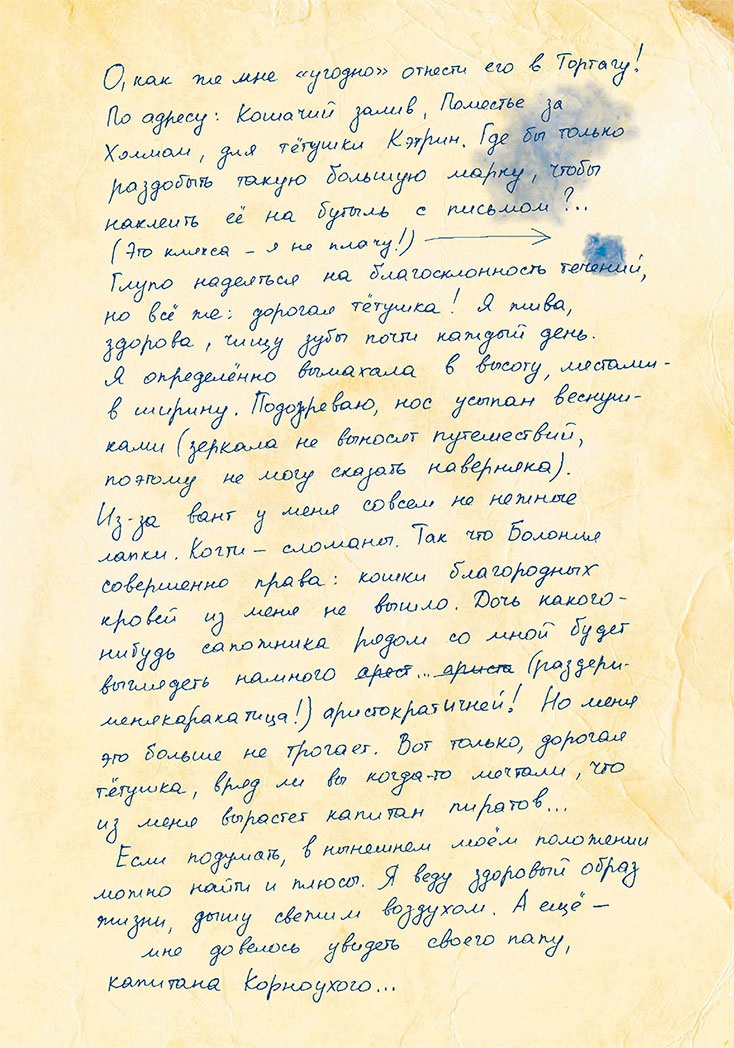 О, как же мне «угодно» отнести его в Тортагу!
По адресу: Кошачий залив, Поместье за
Холмом, для тётушки Кэтрин. Где бы только
раздобыть такую большую марку, чтобы
наклеить её на бутыль с письмом?..
(Это клякса – я не плачу!)
Глупо надеяться на благосклонность течений,
но всё же: дорогая тётушка! Я жива,
здорова, чищу зубы почти каждый день.
Я определённо вымахала в высоту, местами -
в ширину. Подозреваю, нос усыпан веснуш-
ками (зеркала не выносят путешествий,
поэтому не могу сказать наверняка).
Из-за вант у меня совсем не нежные
лапки. Когти – сломаны. Так что Болония
совершенно права: кошки благородных
кровей из меня не вышло. Дочь какого-
нибудь сапожника рядом со мной будет
выглядеть намного арест... ариста (раздери-
менякаракатица!) аристократичней! Но меня
это больше не трогает. Вот только, дорогая
тётушка, вряд ли вы когда-то мечтали, что
из меня вырастет капитан пиратов...
Если подумать, в нынешнем моём положении
можно найти и плюсы. Я веду здоровый образ
жизни, дышу свежим воздухом. А ещё –
мне довелось увидеть своего папу,
капитана Корноухого...